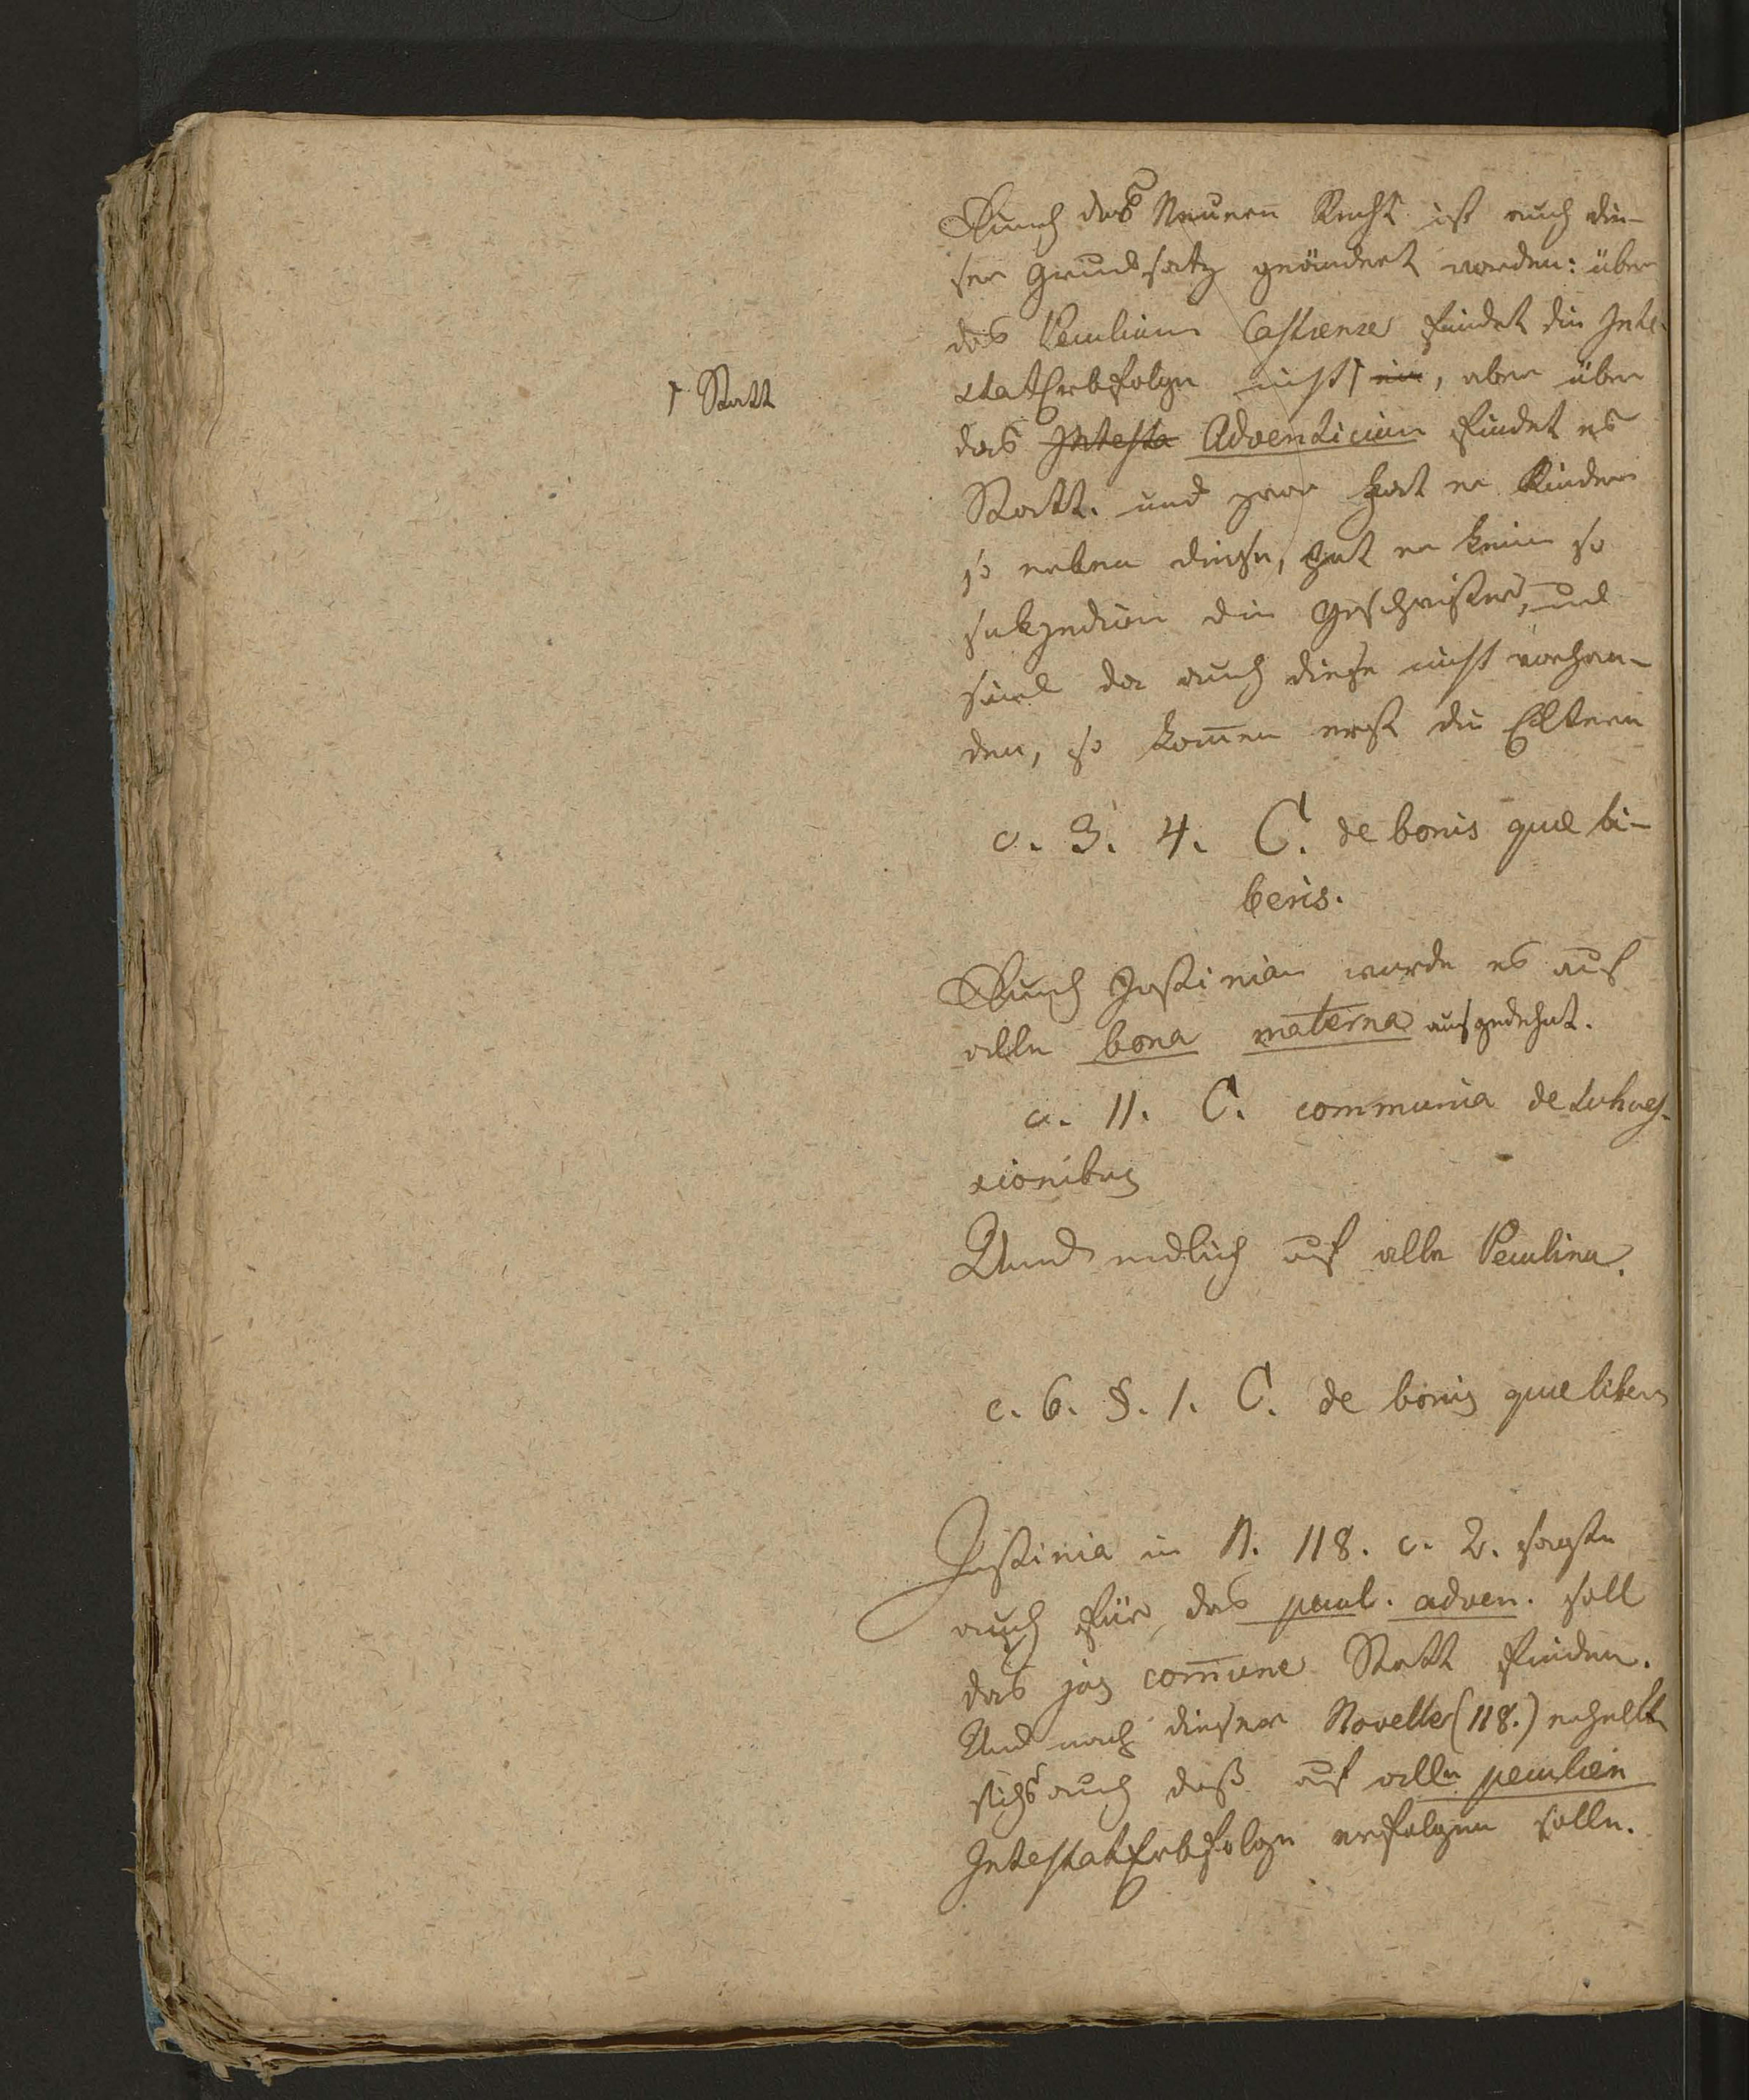 Durch das Neuere Recht ist auch die-
ser Grundsatz geändert worden: über
das Peculium Castrense findet die Inte-
statErbfolge nicht ein, aber über
Statt
das Intesta Adventicium findet es
Statt. und zwar hat er Kinder
so erben diese, hat er keine so
sukzediren die Geschwister, und
sind da auch diese nicht vorhan-
den, so kom̄en erst die Eltern
c. 3. 4. C. de bonis quae li-
beris.
Durch Justinian wurde es auf
alle bona materna ausgedehnt.
c. 11. C. communia de Sukces-
sionibus
Und endlich auf alle Peculien.
c. 6. §. 1. C. de bonis quae liberis
Justinia in N. 118. c. 2. sagte
auch für das pecul. adven. soll
das jus com̄une Statt finden.
Und nach dieser Novelle (118.) erhellt
sichs auch daß auf alle peculien
IntestatErbfolge erfolgen solle.